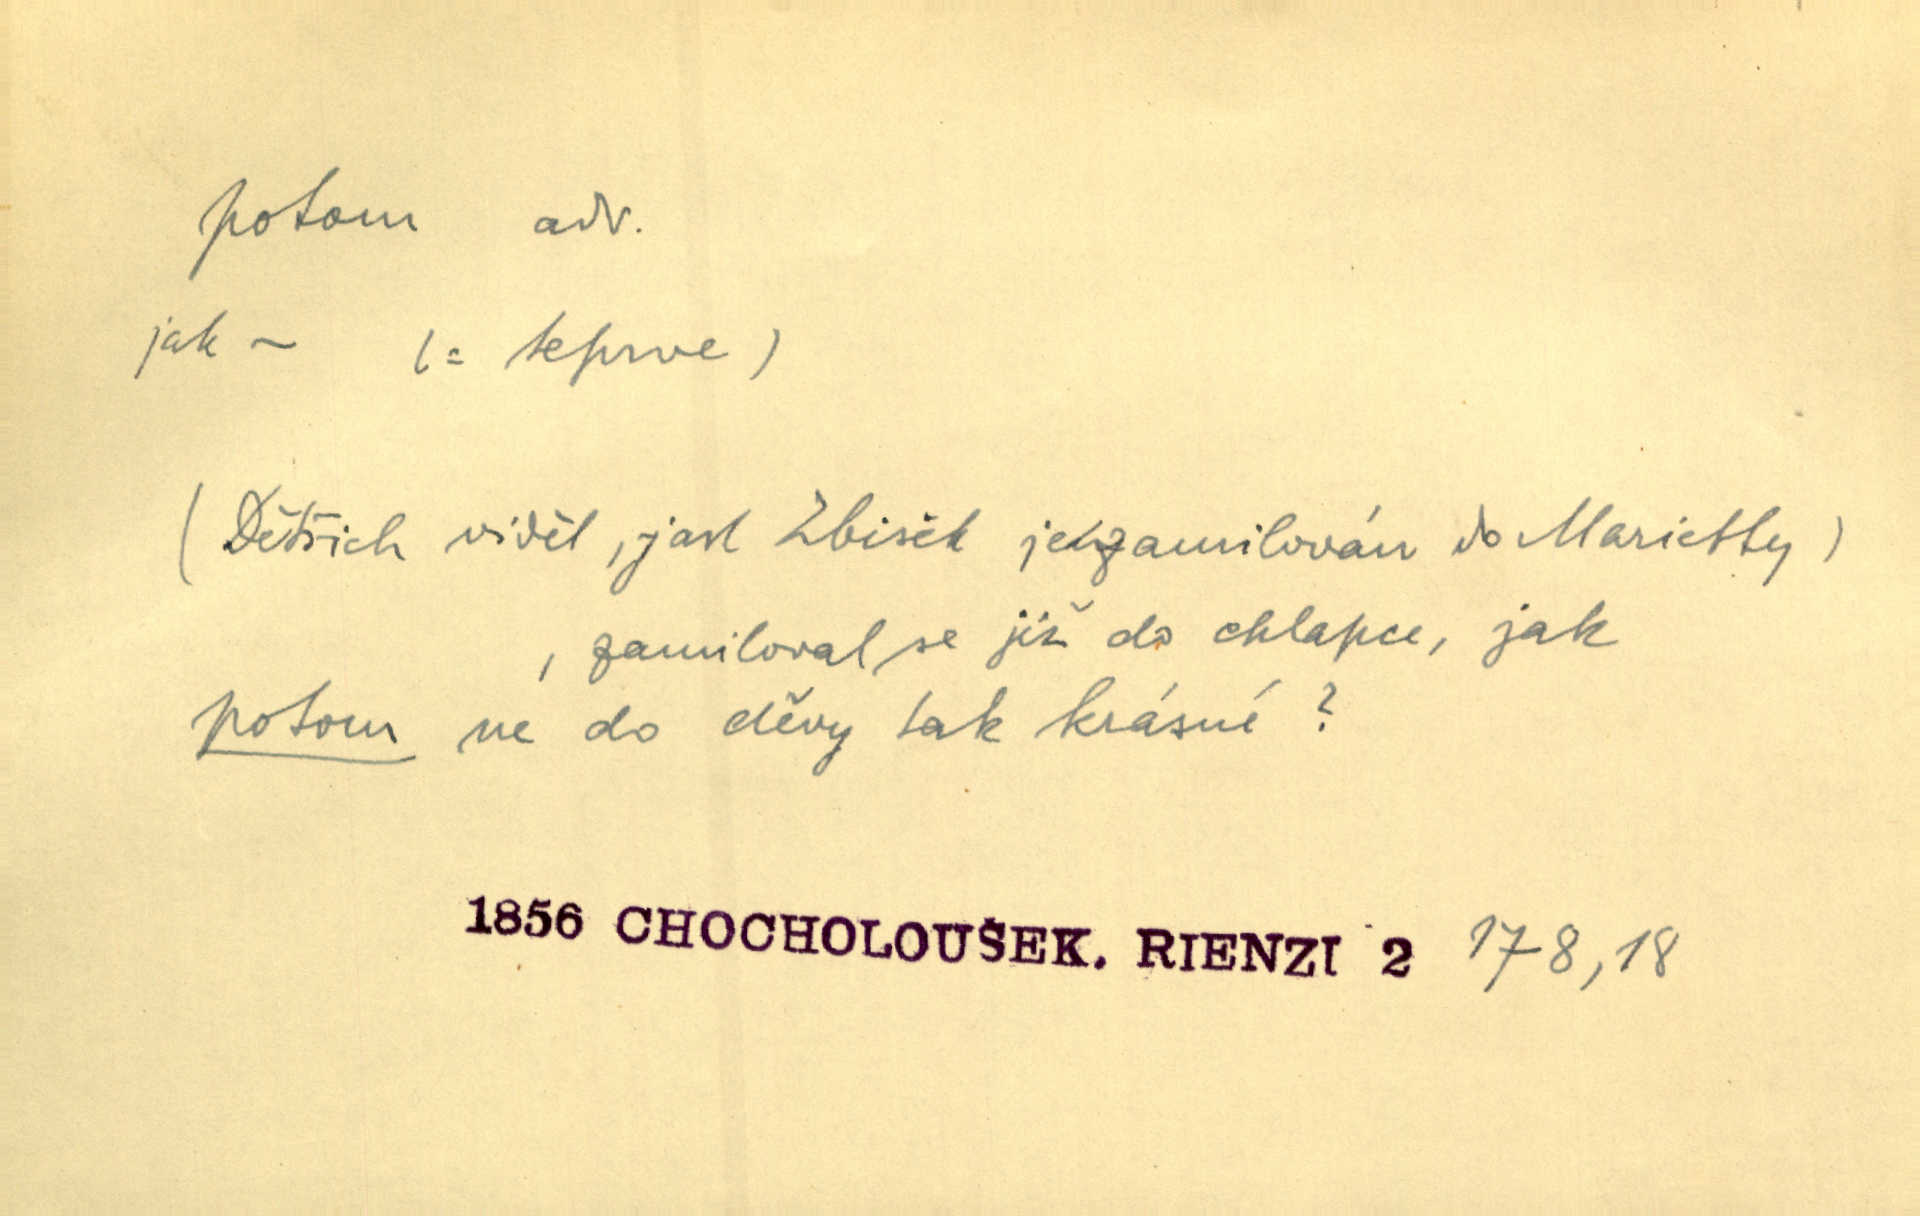 potom adv.
jak ~ (= teprve)
(Dětřich viděl, jak Zbišek je zamilován do Marietty)
, zamiloval se již do chlapce, jak
potom ne do děvy tak krásné?
1856 CHOCHOLOUŠEK. RIENZI 2 178,18